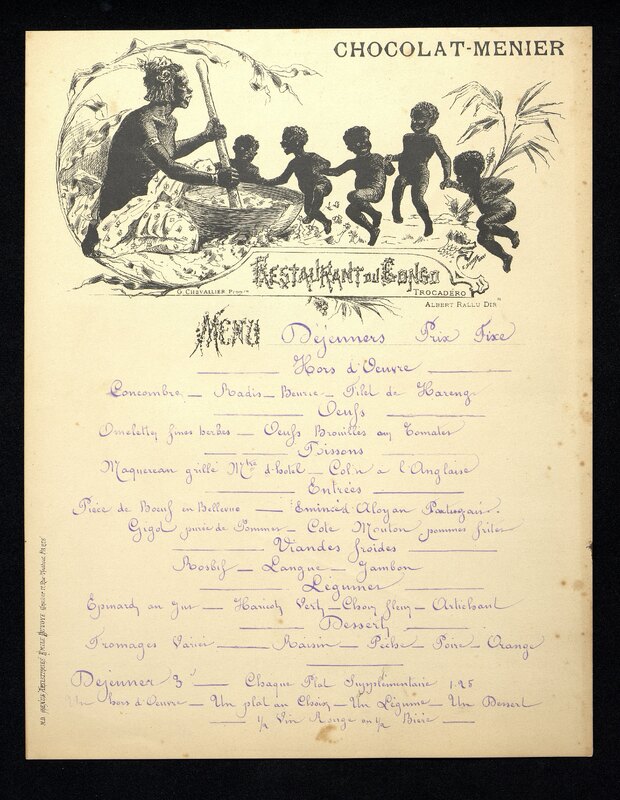 CHOCOLAT-MENIER
RESTAURANT DU CONGO
G. CHEVALLIER Propre
TROCADÉRO
ALBERT RALLU DIRr
MENU Déjeuners Prix Fixe
Hors d'Oeuvre
Concombre — Radis — Beurre — Filet de Hareng
Oeufs
Omelette fines herbes — Oeufs Brouillés aux Tomates
Poissons
Maquereau grillé Mtre d'hotel — Colin a l'Anglaise
Entrées
Pièce de Boeuf en Bellevue — Emincéd Aloyau
Gigot purée de Pommes — Cote Mouton pommes frites
Viandes froides
Rosbif — Langue — Jambon
Légumes
Epinard au Jus — Haricot Vert — Choux fleur — Artichaut
Dessert
Fromages Variés — Raisin — Pêche — Poire — Orange
Dejeuner 3f — Chaque Plat Supplémentaire 1.25
Un hors d'Oeuvre — Un plat au Choix — Un Légume — Un Dessert
½ Vin Rouge ou ½ Bière